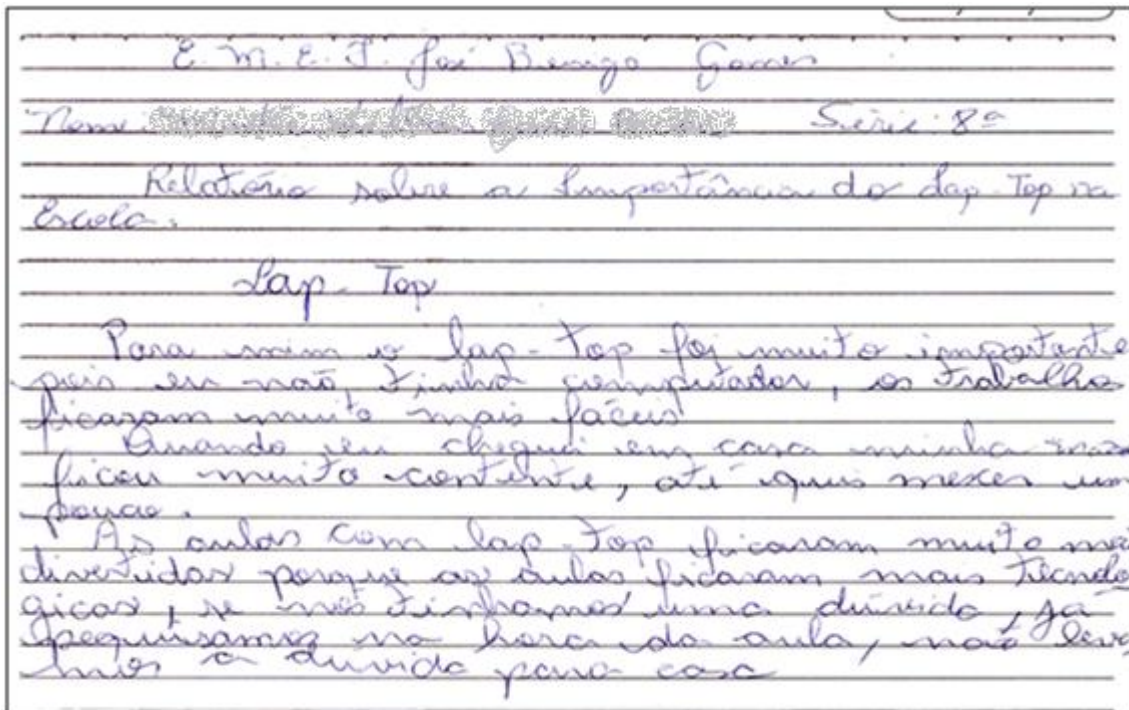 E. M. E. F. José Benigo Gomes
Nome Série: 8ª
Relatório sobre a Importância do Lap-Top na
Escola.
Lap-Top
Para mim o lap-top foi muito importante
pois eu não tinha computador, os trabalhos
ficaram muito mais fáceis
Quando eu cheguei em casa minha mãe
ficou muito contente, até quis mexer um
pouco.
As aulas com lap-top ficaram muito mai
divertidas porque as aulas ficaram mais tecnoló
gicas, se nós tinhamos uma dúvida, já
pequisamos na hora da aula, não leva
mos a duvida para casa